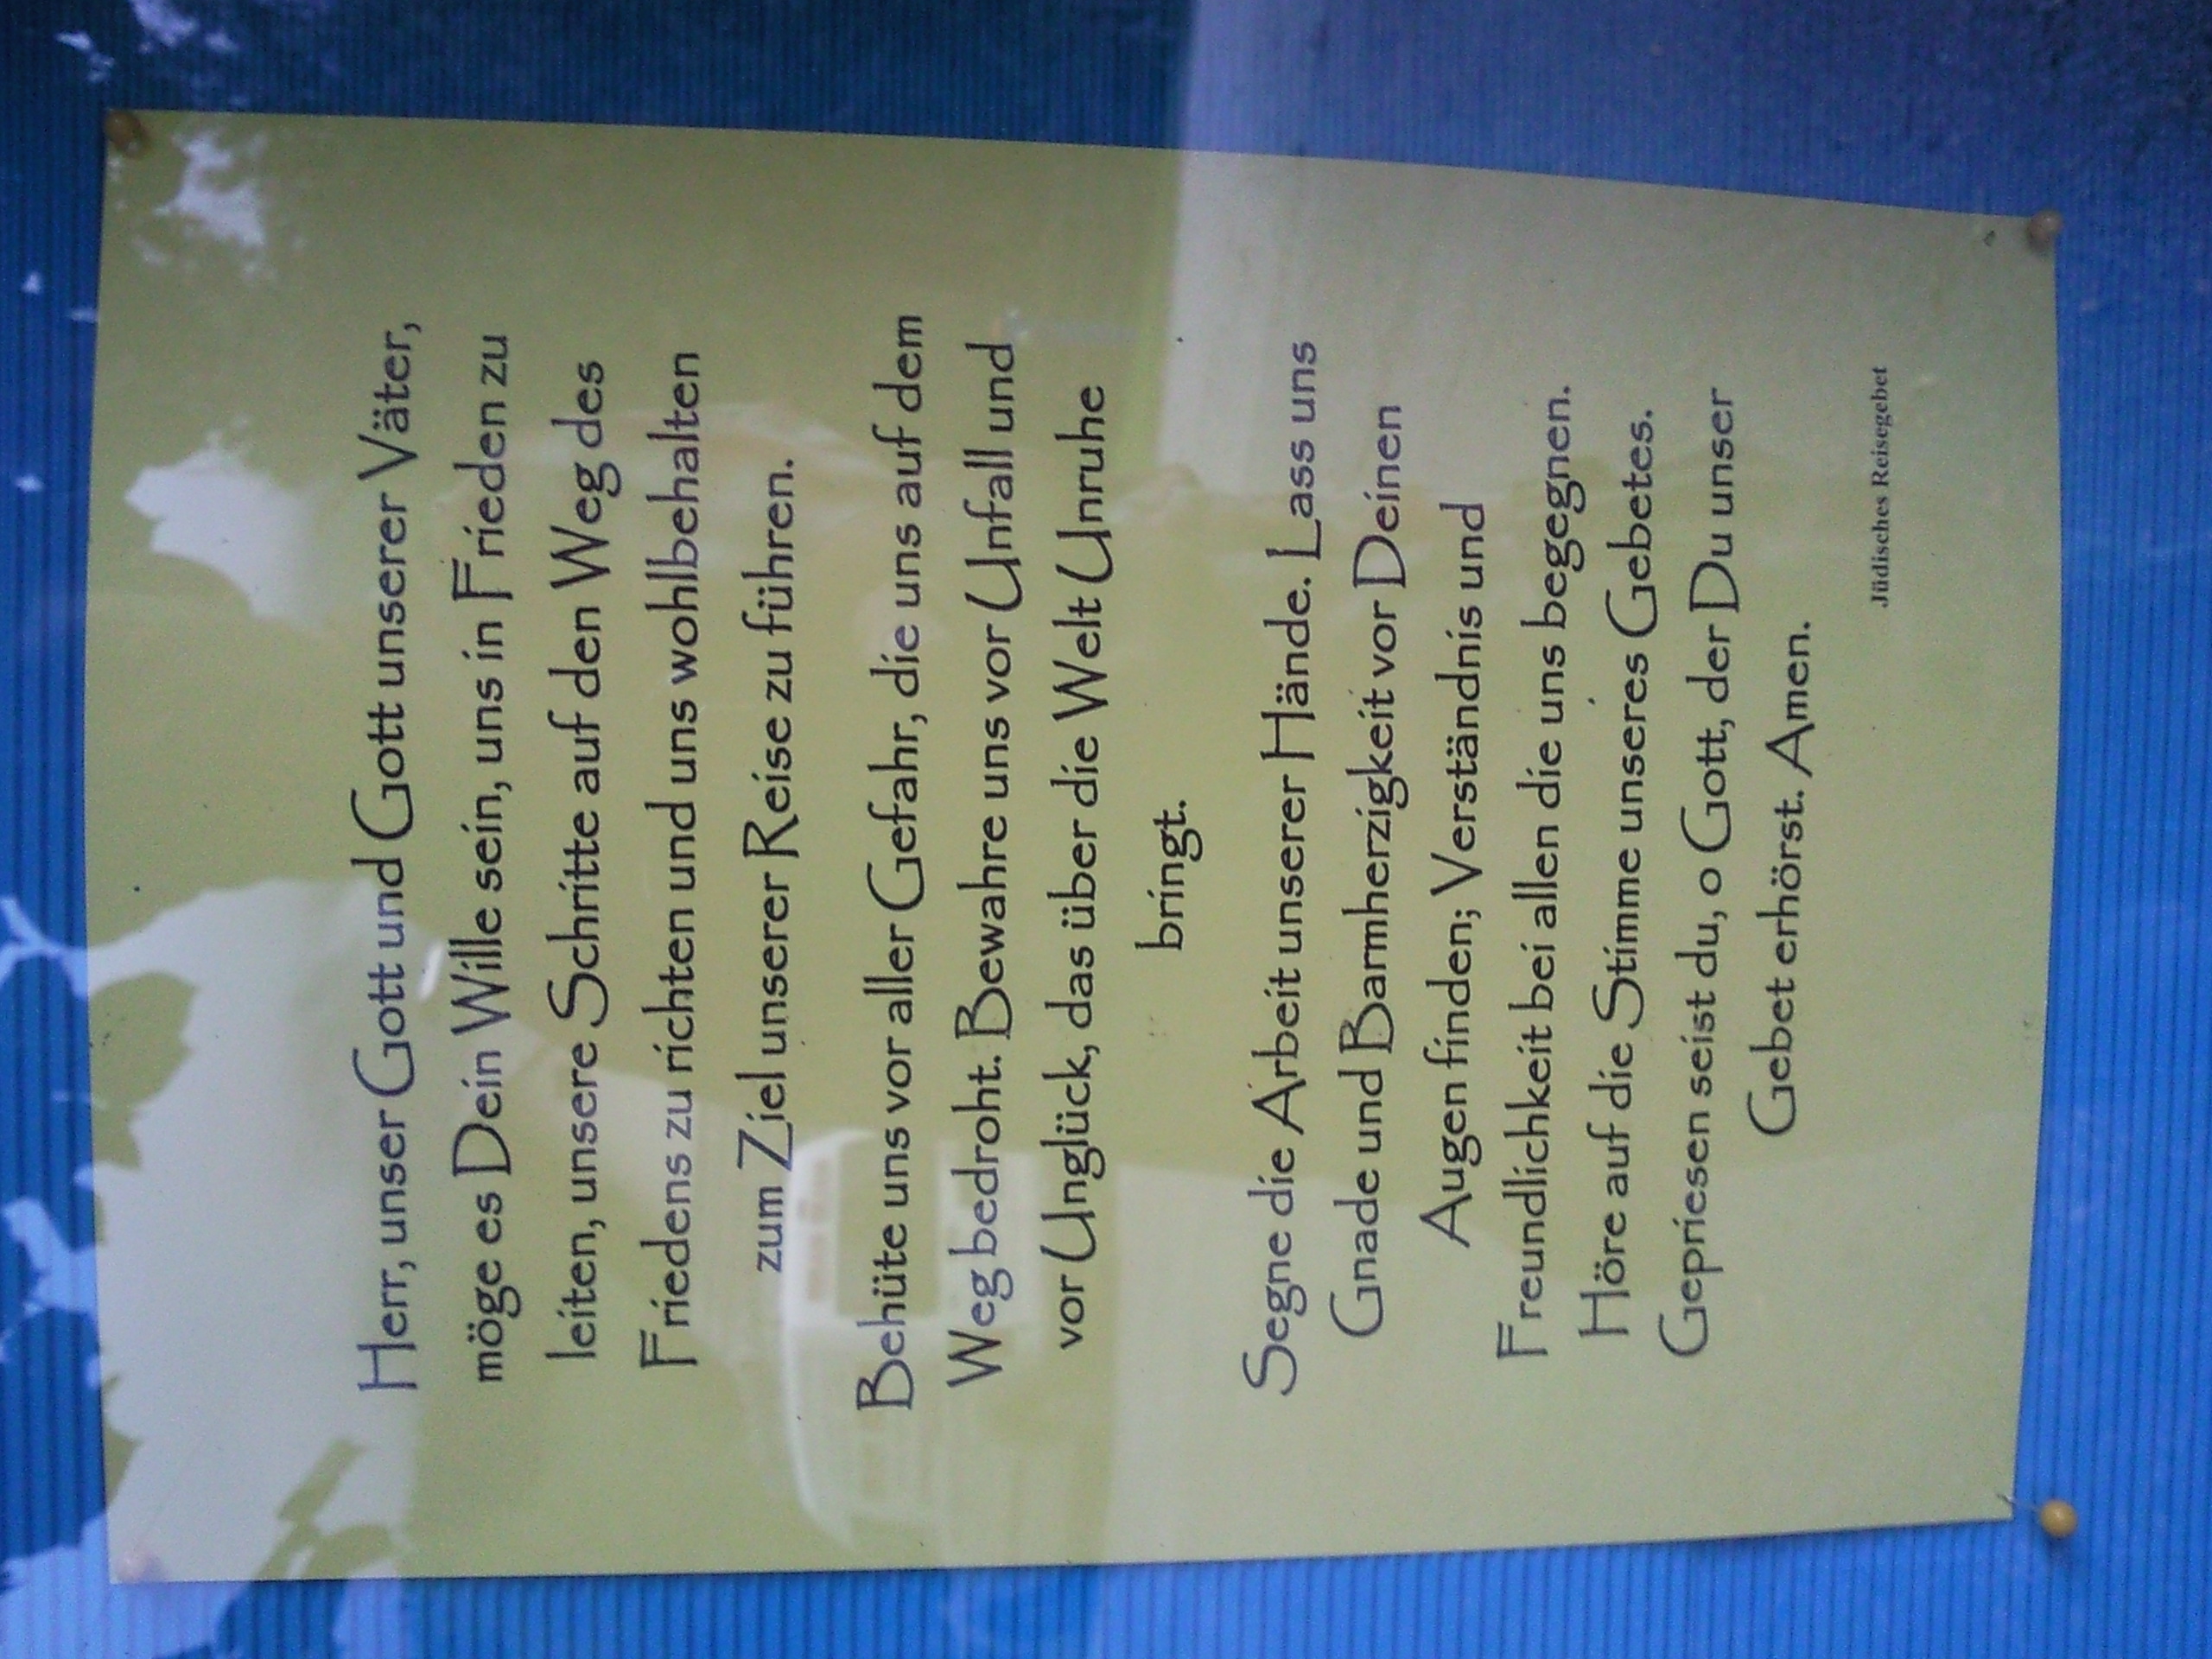 Herr, unser Gott und Gott unserer Väter,
möge es Dein Wille sein, uns in Frieden zu
leiten, unsere Schritte auf den Weg des
Friedens zu richten und uns wohlbehalten
zum Ziel unserer Reise zu führen.
Behüte uns vor aller Gefahr, die uns auf dem
Weg bedroht. Bewahre uns vor Unfall und
vor Unglück, das über die Welt Unruhe
bringt.
Segne die Arbeit unserer Hände. Lass uns
Gnade und Barmherzigkeit vor Deinen
Augen finden; Verständnis und
Freundlichkeit bei allen die uns begegnen.
Höre auf die Stimme unseres Gebetes.
Gepriesen seist du, o Gott, der Du unser
Gebet erhörst. Amen.
Jüdisches Reisegebet